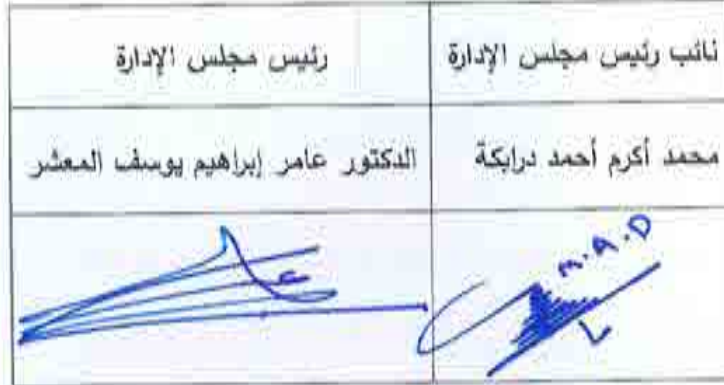 نائب رئيس مجلس الإدارة
رئيس مجلس الإدارة
محمد أكرم أحمد درابكة
الدكتور عامر إبراهيم يوسف المعشر
M.A.D